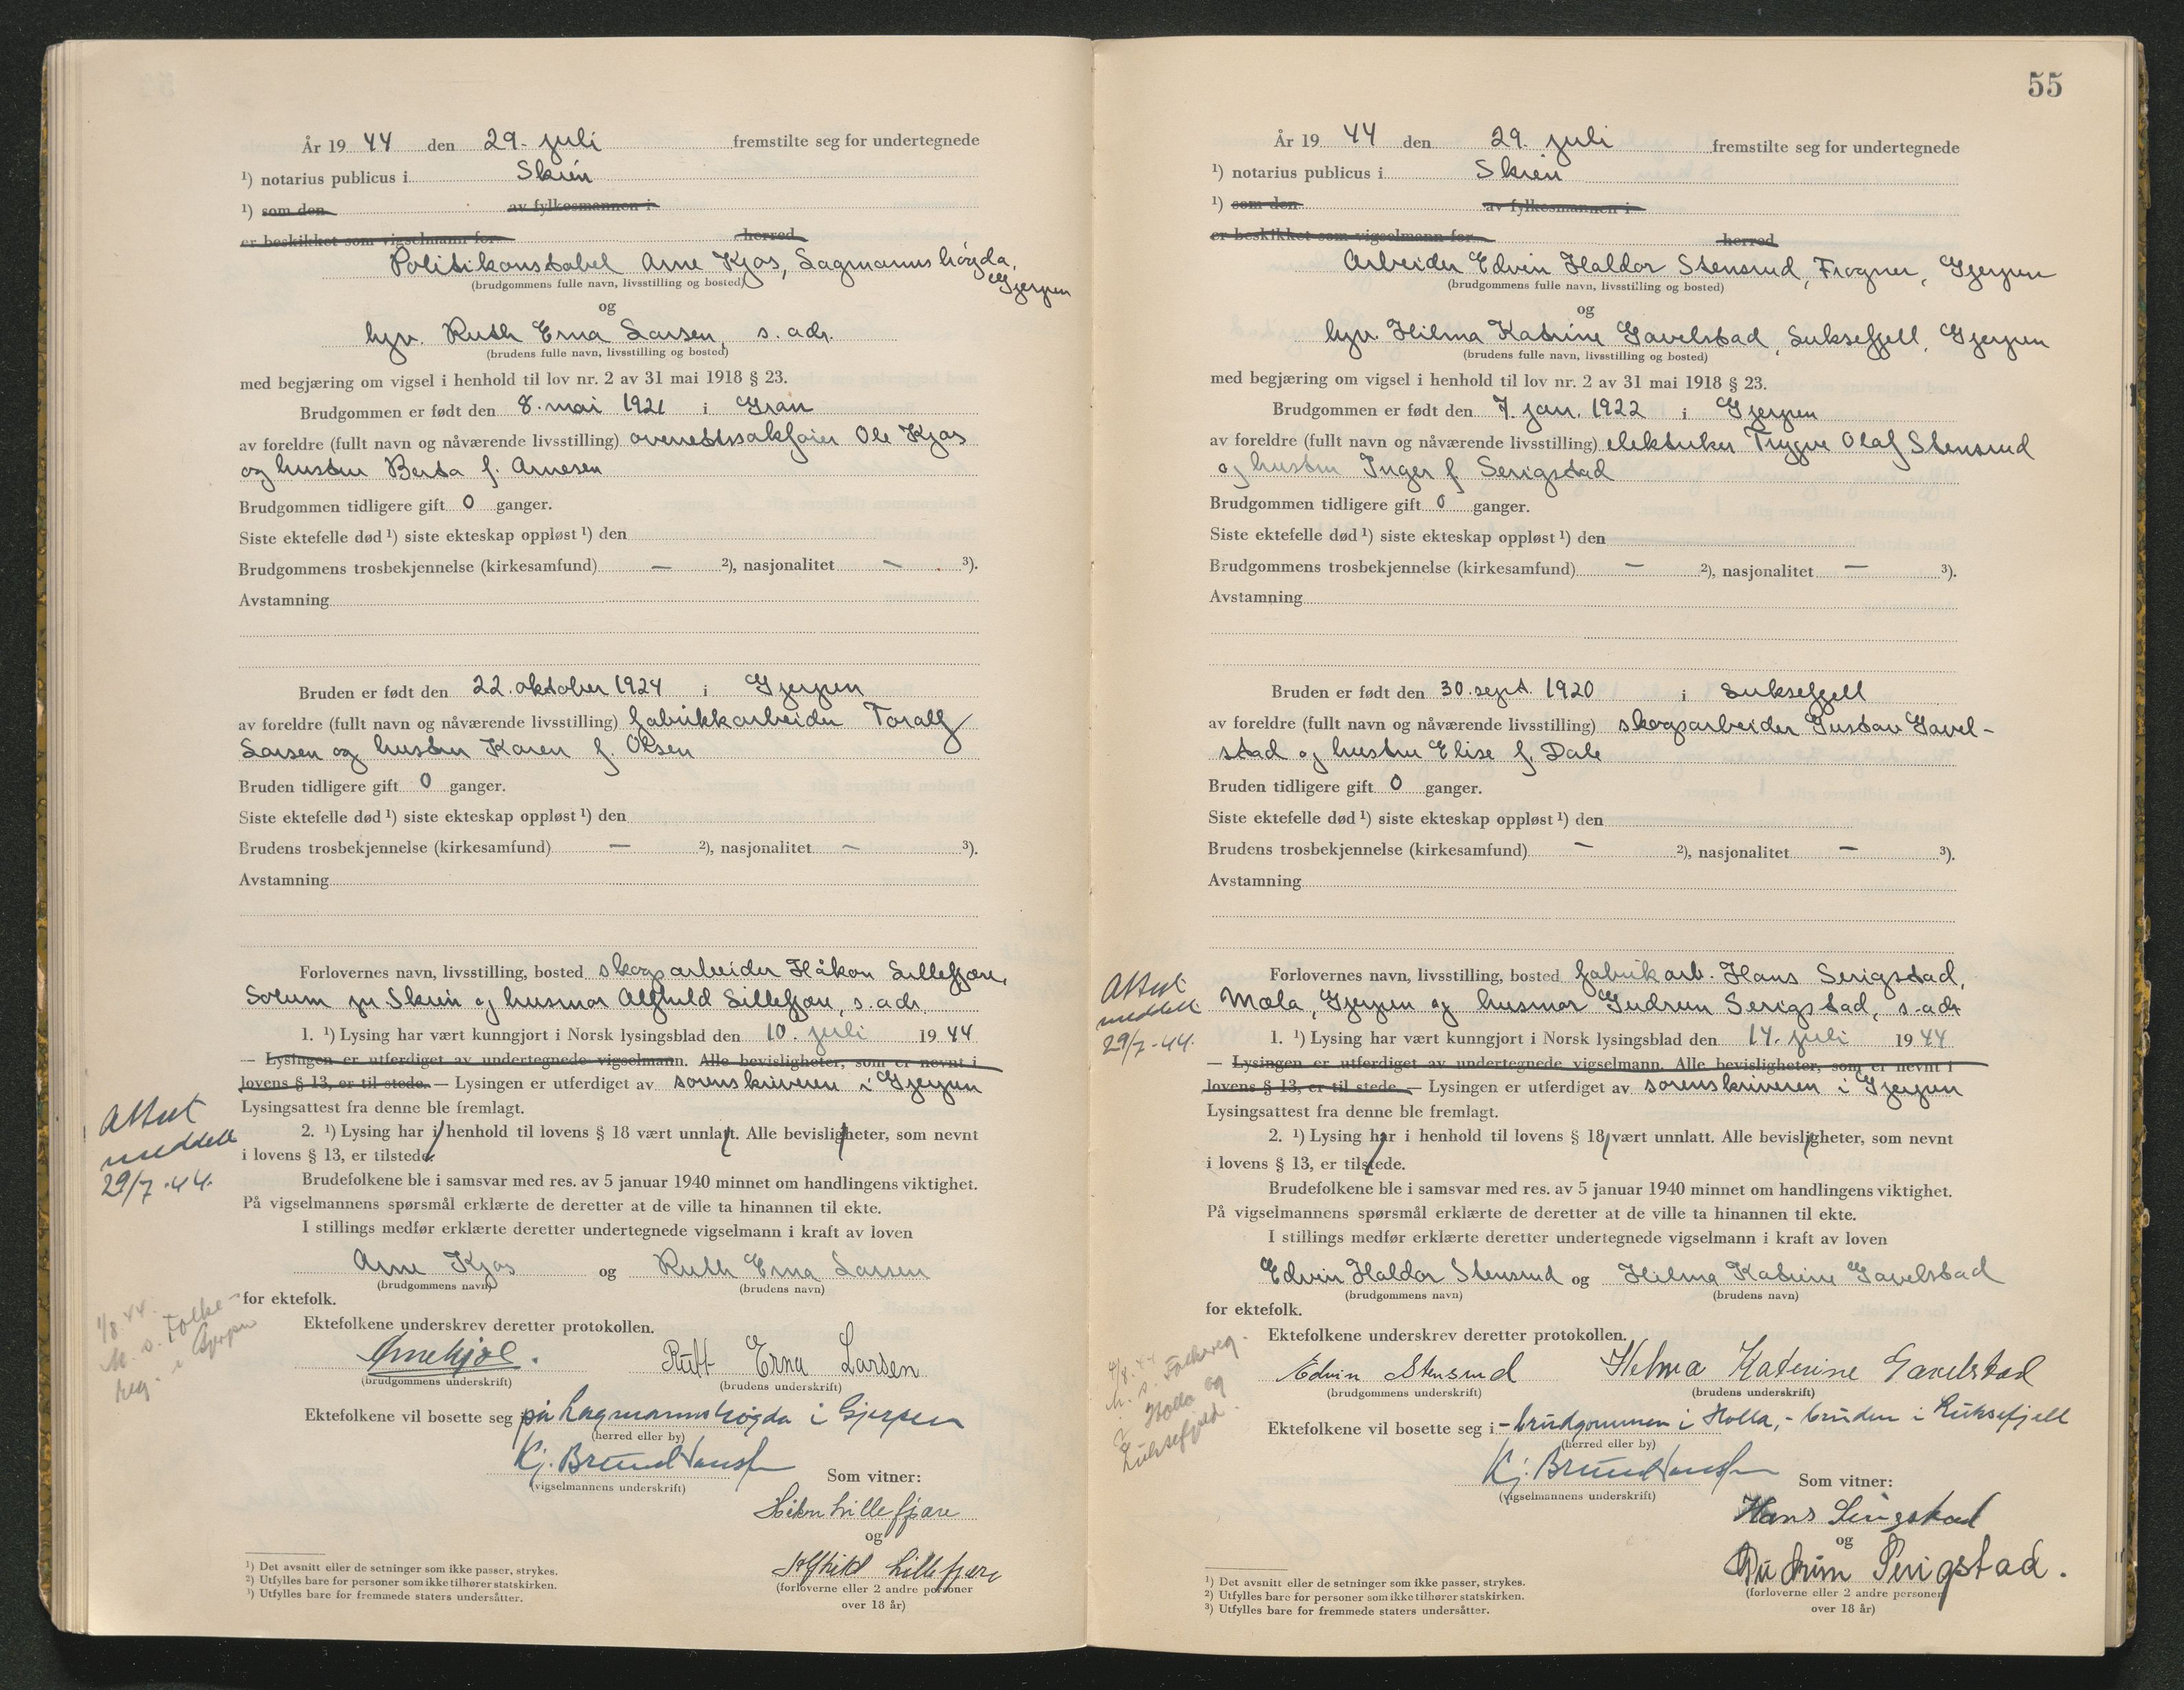 År 19 44 den 29. juli fremstilte seg for undertegnede
¹) notarius publicus i Skien
¹) som den av fylkesmannen i
er beskikket som vigselmann for herred
Politikonstabel Arne Kjos, Lagmannshøgda,
Gjerpen
(brudgommens fulle navn, livsstilling og bosted)
og
hgv. Ruth Erna Larsen, s. adr.
(brudens fulle navn, livsstilling og bosted)
med begjæring om vigsel i henhold til lov nr. 2 av 31 mai 1918 § 23.
Brudgommen er født den 8. mai 1921 i Gran
av foreldre (fullt navn og nåværende livsstilling) overrettssakfører Ole Kjos
og hustru Berta f. Arnesen
Brudgommen tidligere gift 0 ganger.
Siste ektefelle død ¹) siste ekteskap oppløst ¹) den
Brudgommens trosbekjennelse (kirkesamfund) — ²), nasjonalitet — ³).
Avstamning
Bruden er født den 22. oktober 1924 i Gjerpen
av foreldre (fullt navn og nåværende livsstilling) fabrikkarbeider Toralf
Larsen og hustru Karen f. Olsen
Bruden tidligere gift 0 ganger.
Siste ektefelle død ¹) siste ekteskap oppløst ¹) den
Brudens trosbekjennelse (kirkesamfund) — ²), nasjonalitet — ³).
Avstamning
Forlovernes navn, livsstilling, bosted skogsarbeider Håkon Lillefjære,
Solum pr. Skien og husmor Alfhild Lillefjære, s. adr.
1. ¹) Lysing har vært kunngjort i Norsk lysingsblad den 10. juli 19 44
— Lysingen er utferdiget av undertegnede vigselmann. Alle bevisligheter, som er nevnt i
lovens § 13, er til stede. — Lysingen er utferdiget av sorenskriveren i Gjerpen
Lysingsattest fra denne ble fremlagt.
2. ¹) Lysing har i henhold til lovens § 18 vært unnlatt. Alle bevisligheter, som nevnt
i lovens § 13, er tilstede.
Attest
meddelt
29/7-44.
Brudefolkene ble i samsvar med res. av 5 januar 1940 minnet om handlingens viktighet.
På vigselmannens spørsmål erklærte de deretter at de ville ta hinannen til ekte.
I stillings medfør erklærte deretter undertegnede vigselmann i kraft av loven
Arne Kjos og Ruth Erna Larsen
(brudgommens navn) (brudens navn)
for ektefolk.
1/8.44.
M. s. Folke-
reg. i Gjerpen
Ektefolkene underskrev deretter protokollen.
Arne Kjos. Ruth Erna Larsen
(brudgommens underskrift) (brudens underskrift)
Ektefolkene vil bosette seg på Lagmannshøgda i Gjerpen
(herred eller by)
Kj. Brund Hansen
(vigselmannens underskrift)
Som vitner:
Håkon Lillefjære
og
Alfhild Lillefjære
(forloverne eller 2 andre personer
over 18 år)
¹) Det avsnitt eller de setninger som ikke passer, strykes.
²) Utfylles bare for personer som ikke tilhører statskirken.
³) Utfylles bare for fremmede staters undersåtter.
55
År 19 44 den 29. juli fremstilte seg for undertegnede
¹) notarius publicus i Skien
¹) som den av fylkesmannen i
er beskikket som vigselmann for herred
Arbeider Edvin Haldor Stensrud, Frogner, Gjerpen
(brudgommens fulle navn, livsstilling og bosted)
og
hgv. Hilma Katrine Gavelstad, Luksefjell, Gjerpen
(brudens fulle navn, livsstilling og bosted)
med begjæring om vigsel i henhold til lov nr. 2 av 31 mai 1918 § 23.
Brudgommen er født den 7. jan. 1922 i Gjerpen
av foreldre (fullt navn og nåværende livsstilling) elektriker Trygve Olaf Stensrud
og hustru Inger f. Serigstad
Brudgommen tidligere gift 0 ganger.
Siste ektefelle død ¹) siste ekteskap oppløst ¹) den
Brudgommens trosbekjennelse (kirkesamfund) — ²), nasjonalitet — ³).
Avstamning
Bruden er født den 30. sept. 1920 i Luksefjell
av foreldre (fullt navn og nåværende livsstilling) skogsarbeider Gustav Gavel-
stad og hustru Elise f. Dale
Bruden tidligere gift 0 ganger.
Siste ektefelle død ¹) siste ekteskap oppløst ¹) den
Brudens trosbekjennelse (kirkesamfund) — ²), nasjonalitet — ³).
Avstamning
Forlovernes navn, livsstilling, bosted fabrikarb. Hans Serigstad,
Mæla, Gjerpen og husmor Gudrun Serigstad, s. adr
Attest
meddelt
29/7-44.
1. ¹) Lysing har vært kunngjort i Norsk lysingsblad den 14. juli 19 44
— Lysingen er utferdiget av undertegnede vigselmann. Alle bevisligheter, som er nevnt i
lovens § 13, er til stede. — Lysingen er utferdiget av sorenskriveren i Gjerpen
Lysingsattest fra denne ble fremlagt.
2. ¹) Lysing har i henhold til lovens § 18 vært unnlatt. Alle bevisligheter, som nevnt
i lovens § 13, er tilstede.
Brudefolkene ble i samsvar med res. av 5 januar 1940 minnet om handlingens viktighet.
På vigselmannens spørsmål erklærte de deretter at de ville ta hinannen til ekte.
I stillings medfør erklærte deretter undertegnede vigselmann i kraft av loven
Edvin Haldor Stensrud og Hilma Katrine Gavelstad
(brudgommens navn) (brudens navn)
for ektefolk.
Ektefolkene underskrev deretter protokollen.
Edvin Stensrud Helma Katerine Gavelstad
(brudgommens underskrift) (brudens underskrift)
M. s. Folkereg.
i Holla og
Luksefjeld.
Ektefolkene vil bosette seg i - brudgommen i Holla, - bruden i Luksefjell
(herred eller by)
Kj. Brund Hansen
(vigselmannens underskrift)
Som vitner:
Hans Serigstad
og
Gudrun Serigstad.
(forloverne eller 2 andre personer
over 18 år)
¹) Det avsnitt eller de setninger som ikke passer, strykes.
²) Utfylles bare for personer som ikke tilhører statskirken.
³) Utfylles bare for fremmede staters undersåtter.